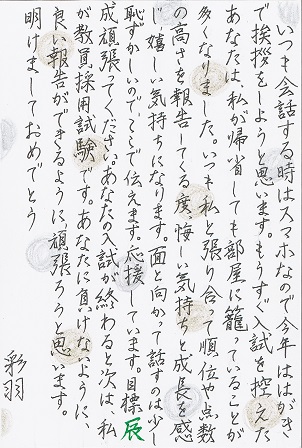 いつも会話する時はスマホなので今年ははがき
で挨拶をしようと思います。もうすぐ入試を控えた
あなたは、私が帰省しても部屋に籠っていることが
多くなりました。いつも私と張り合って順位や点数
の高さを報告してくる度、悔しい気持ちと成長を感
じ嬉しい気持ちになります。面と向かって話すのは少し
恥ずかしいので、ここで伝えます。応援しています。目標辰
成頑張ってください。あなたの入試が終わると次は、私
が教員採用試験です。あなたに負けないように、
良い報告ができるように頑張ろうと思います。
明けましておめでとう
彩羽